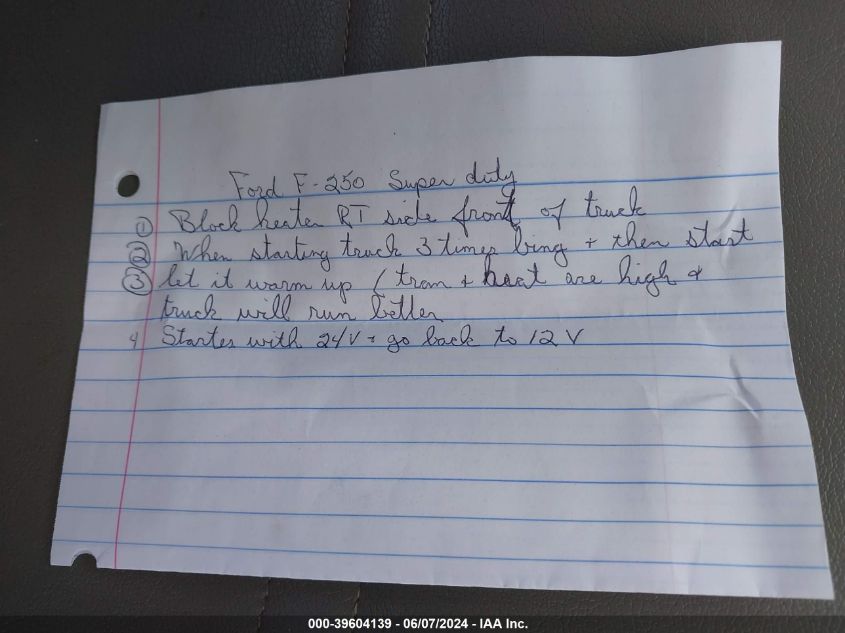 Ford F-250 Super duty
① Block heater RT side front of truck
② When starting truck 3 times bing + then start
③ let it warm up ( tran + heat are high &
truck will run better
4 Startes with 24V + go back to 12 V
000-39604139 - 06/07/2024 - IAA Inc.